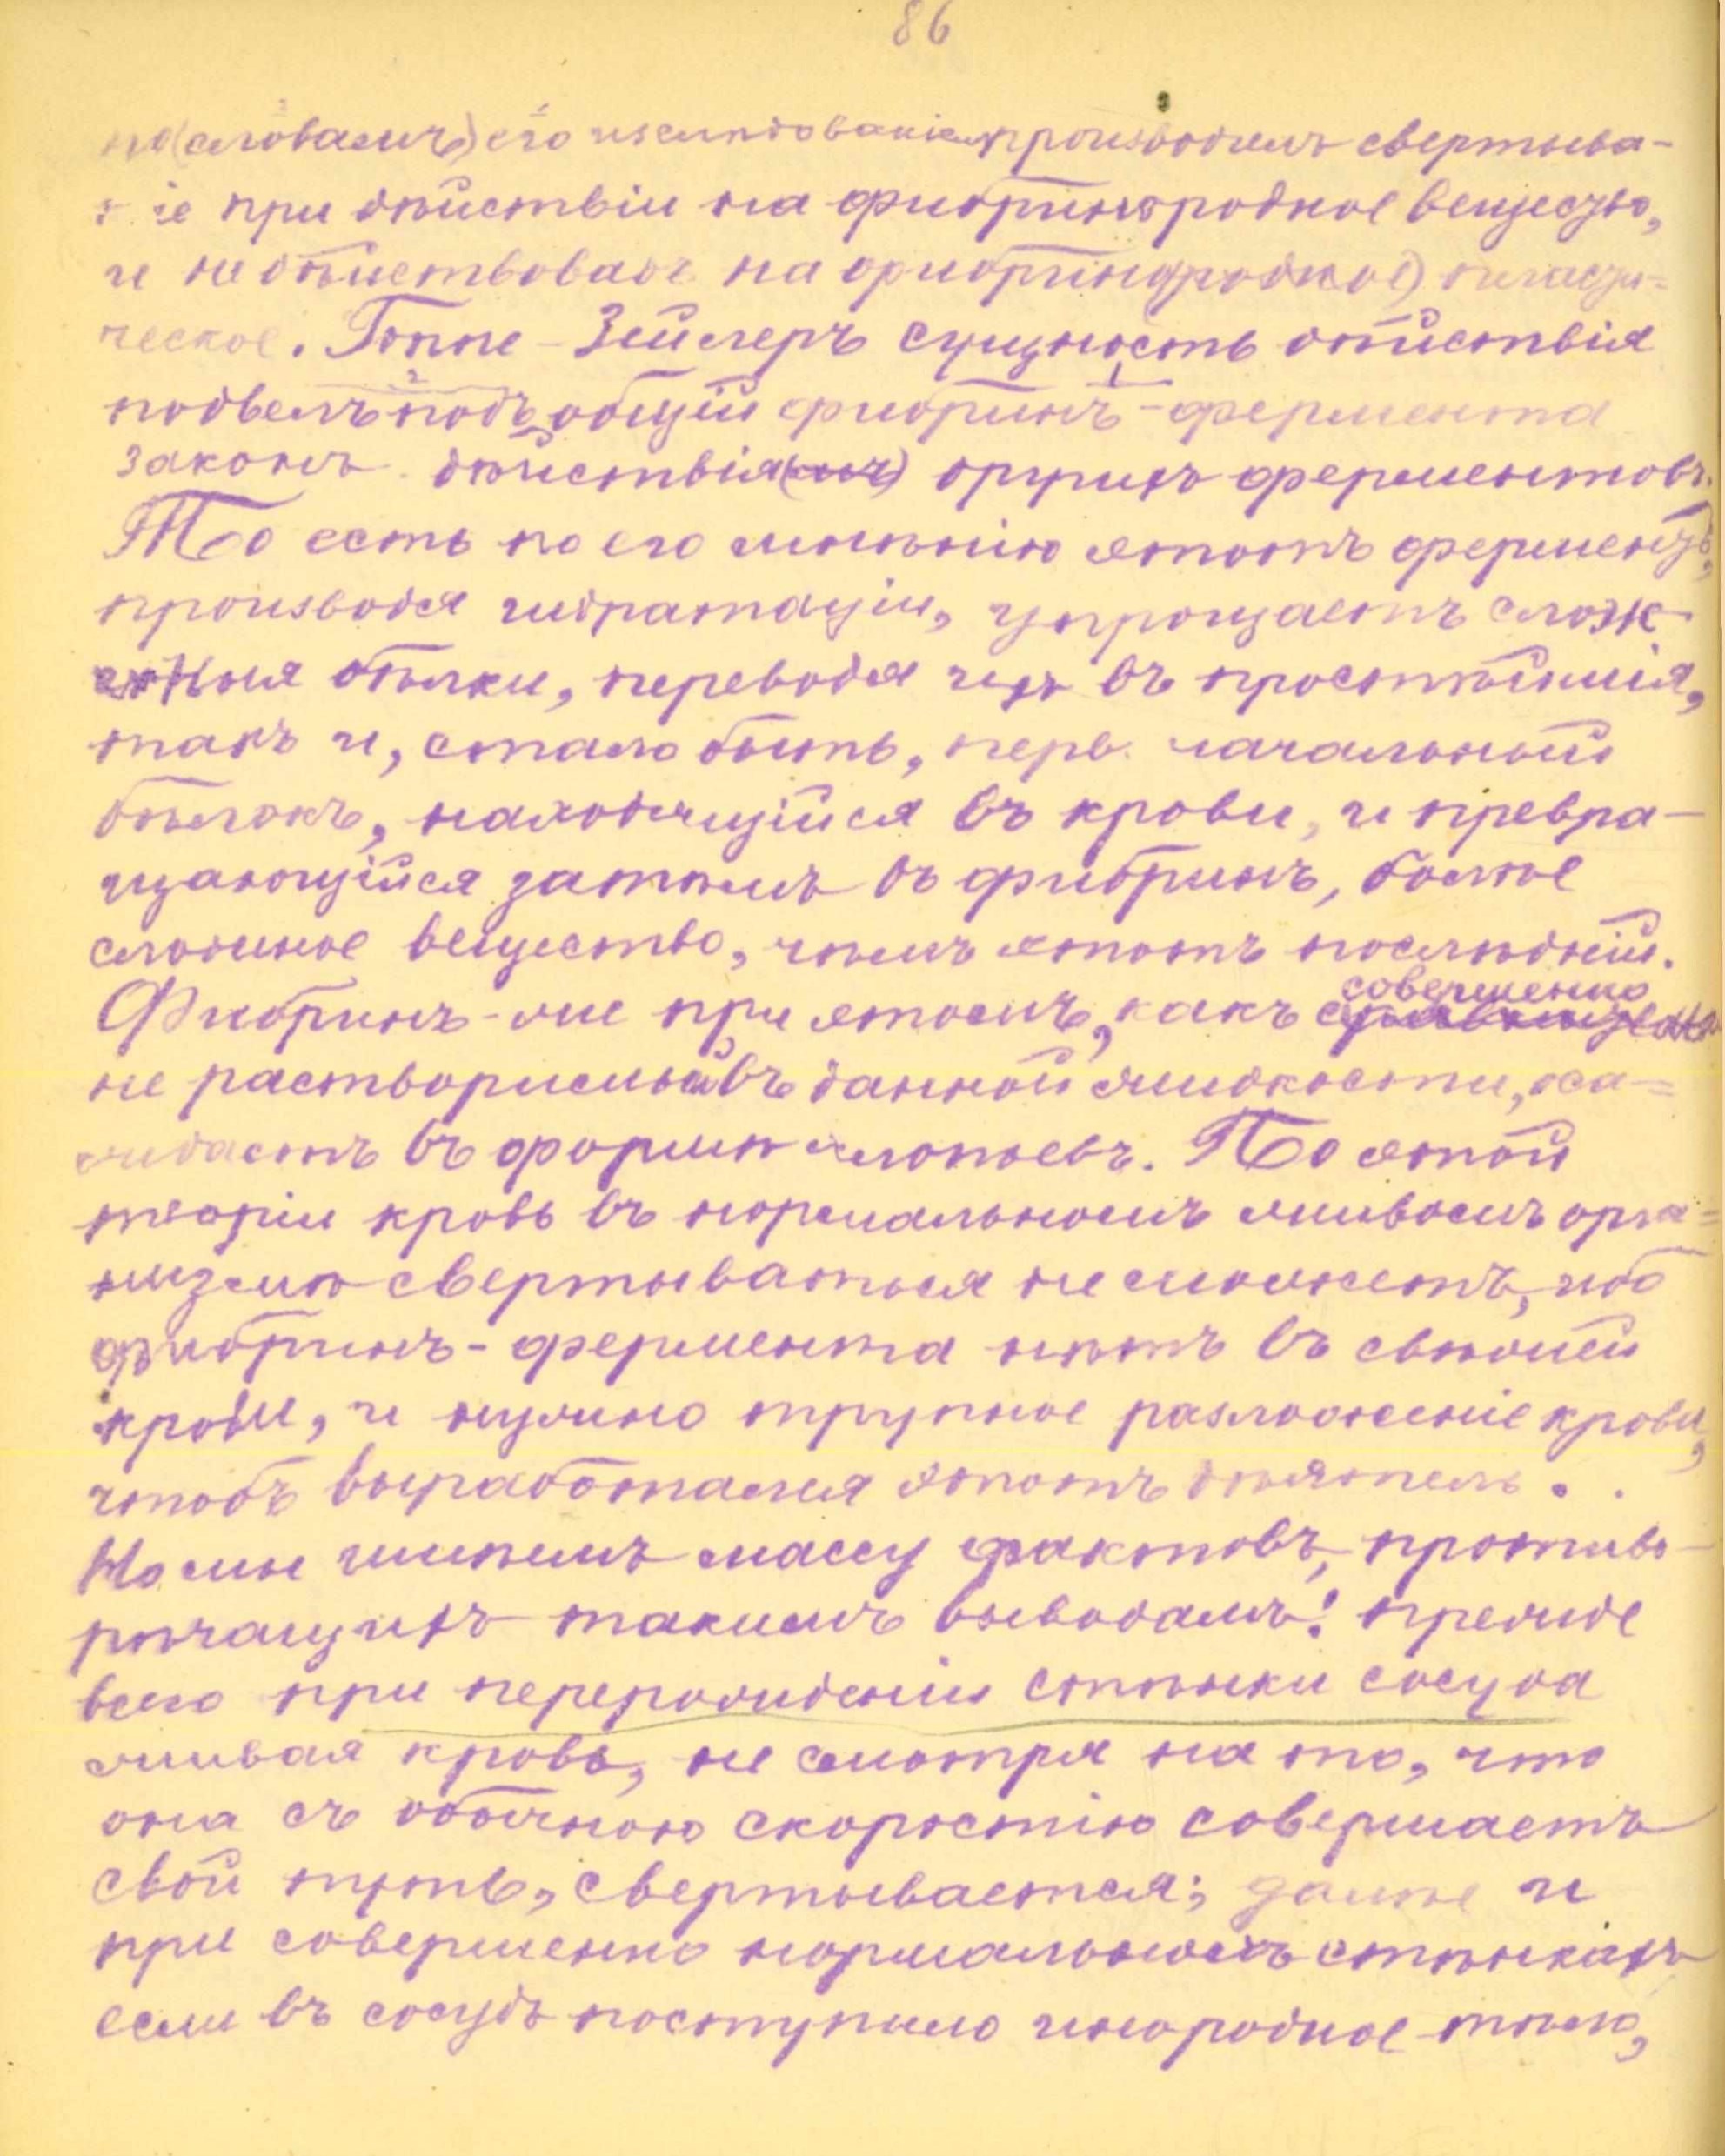 86
по (словамъ) его изслѣдованіямъ производилъ свертыва-
ніе при дѣйствіи на фибриногородное вещество,
и не дѣйствовалъ на (фибриногородное) пласти-
ческое. Гоппе-Зейлеръ сущность дѣйствія
подвелъ подъ общій фибринъ-фермента
законъ дѣйствія другихъ ферментовъ.
То есть по его мнѣнію этотъ ферментъ,
производя гидратаціи, упрощаетъ слож-
ныя бѣлки, переводя ихъ въ простѣйшія,
такъ и, стало быть, перв. начальный
бѣлокъ, находящійся въ крови, и превра-
щающійся затѣмъ въ фибринъ, болѣе
сложное вещество, чѣмъ этотъ послѣдній.
Фибринъ-же при этомъ, какъ совершенно
не растворимый въ данной жидкости, оса-
ждаетъ въ формѣ хлопьевъ. По этой
теоріи кровь въ нормальномъ живомъ орга-
низмѣ свертываться не можетъ, ибо
фибринъ-фермента нѣтъ въ свѣжей
крови, и нужно трупное разложеніе крови,
чтобъ выработался этотъ дѣятель.
Но мы имѣемъ массу фактовъ, противо-
рѣчащихъ такимъ выводамъ: прежде
всего при перерожденіи стѣнки сосуда
живая кровь, не смотря на то, что
она съ обычною скоростію совершаетъ
свой путь, свертывается; далѣе и
при совершенно нормальныхъ стѣнкахъ
если въ сосудъ поступило инородное тѣло,